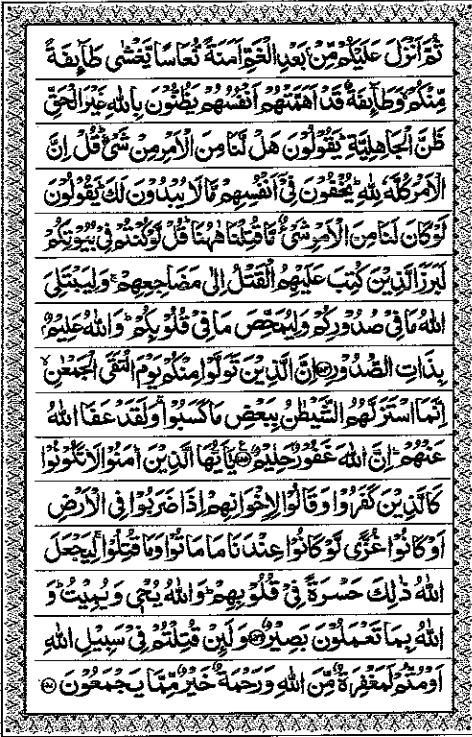 ثُمَّ اَنْزَلَ عَلَيْكُمْ مِّنْۢ بَعْدِ الْغَمِّ اَمَنَةً نُّعَاسًا يَّغْشٰى طَآئِفَةً
مِّنْكُمْ ۙ وَطَآئِفَةٌ قَدْ اَهَمَّتْهُمْ اَنْفُسُهُمْ يَظُنُّوْنَ بِاللّٰهِ غَيْرَ الْحَقِّ
ظَنَّ الْجَاهِلِيَّةِ ؕ يَقُوْلُوْنَ هَلْ لَّنَا مِنَ الْاَمْرِ مِنْ شَيْءٍ ؕ قُلْ اِنَّ
الْاَمْرَ كُلَّهٗ لِلّٰهِ ؕ يُخْفُوْنَ فِيْۤ اَنْفُسِهِمْ مَّا لَا يُبْدُوْنَ لَكَ ؕ يَقُوْلُوْنَ
لَوْ كَانَ لَنَا مِنَ الْاَمْرِ شَيْءٌ مَّا قُتِلْنَا هٰهُنَا ؕ قُلْ لَّوْ كُنْتُمْ فِيْ بُيُوْتِكُمْ
لَبَرَزَ الَّذِيْنَ كُتِبَ عَلَيْهِمُ الْقَتْلُ اِلٰى مَضَاجِعِهِمْ ۚ وَلِيَبْتَلِيَ
اللّٰهُ مَا فِيْ صُدُوْرِكُمْ وَلِيُمَحِّصَ مَا فِيْ قُلُوْبِكُمْ ؕ وَاللّٰهُ عَلِيْمٌۢ
بِذَاتِ الصُّدُوْرِ ﴿۱۵۴﴾ اِنَّ الَّذِيْنَ تَوَلَّوْا مِنْكُمْ يَوْمَ الْتَقَى الْجَمْعٰنِ ۙ
اِنَّمَا اسْتَزَلَّهُمُ الشَّيْطٰنُ بِبَعْضِ مَا كَسَبُوْا ۚ وَلَقَدْ عَفَا اللّٰهُ
عَنْهُمْ ؕ اِنَّ اللّٰهَ غَفُوْرٌ حَلِيْمٌ ﴿۱۵۵﴾ يٰۤاَيُّهَا الَّذِيْنَ اٰمَنُوْا لَا تَكُوْنُوْا
كَالَّذِيْنَ كَفَرُوْا وَقَالُوْا لِاِخْوَانِهِمْ اِذَا ضَرَبُوْا فِي الْاَرْضِ
اَوْ كَانُوْا غُزًّى لَّوْ كَانُوْا عِنْدَنَا مَا مَاتُوْا وَمَا قُتِلُوْا ۚ لِيَجْعَلَ
اللّٰهُ ذٰلِكَ حَسْرَةً فِيْ قُلُوْبِهِمْ ؕ وَاللّٰهُ يُحْيٖ وَيُمِيْتُ ؕ وَ
اللّٰهُ بِمَا تَعْمَلُوْنَ بَصِيْرٌ ﴿۱۵۶﴾ وَلَئِنْ قُتِلْتُمْ فِيْ سَبِيْلِ اللّٰهِ
اَوْ مُتُّمْ لَمَغْفِرَةٌ مِّنَ اللّٰهِ وَرَحْمَةٌ خَيْرٌ مِّمَّا يَجْمَعُوْنَ ﴿۱۵۷﴾